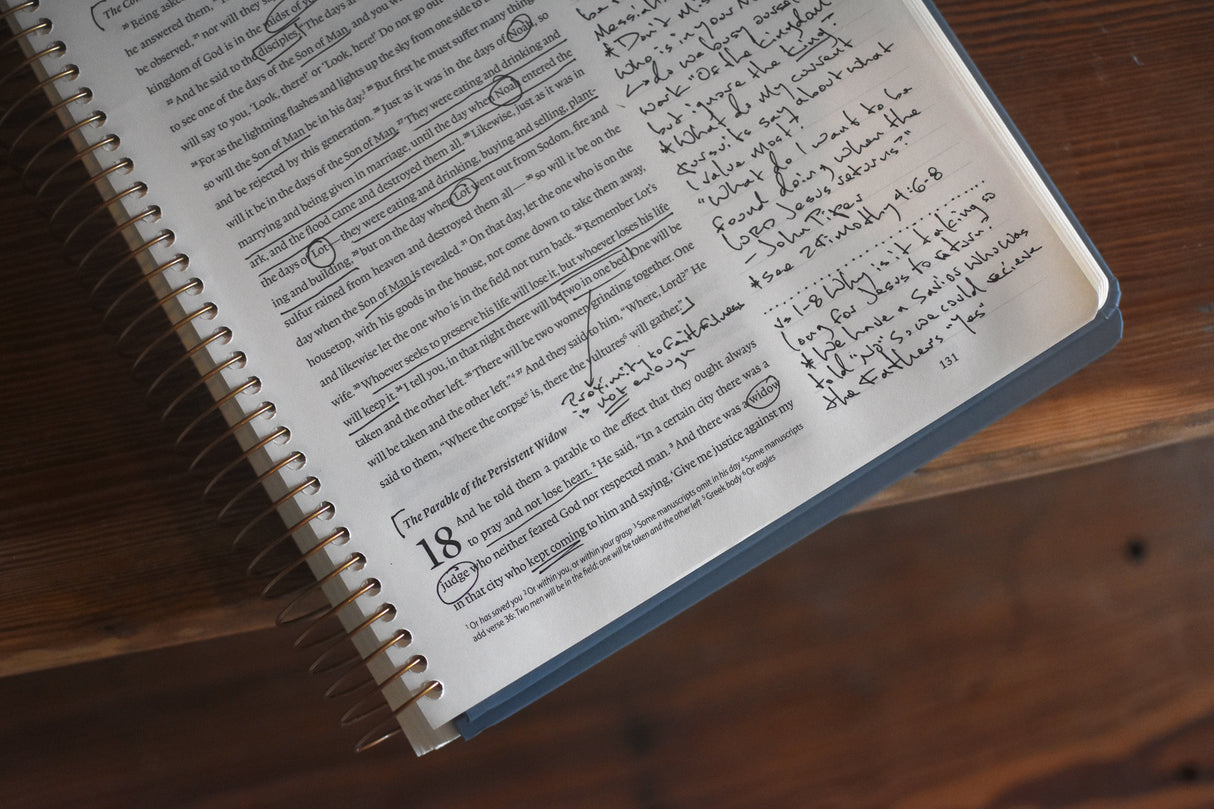 The Co
20 Being aske
he answered them, "
be observed, 21 nor will they
kingdom of God is in the midst of y
22 And he said to the disciples, "The days a
to see one of the days of the Son of Man, and you w
will say to you, 'Look, there!' or 'Look, here!' Do not go out
24 For as the lightning flashes and lights up the sky from one side to
so will the Son of Man be in his day.3 25 But first he must suffer many thing
and be rejected by this generation. 26 Just as it was in the days of Noah, so
will it be in the days of the Son of Man. 27 They were eating and drinking and
marrying and being given in marriage, until the day when Noah entered the
ark, and the flood came and destroyed them all. 28 Likewise, just as it was in
the days of Lot—they were eating and drinking, buying and selling, plant-
ing and building, 29 but on the day when Lot went out from Sodom, fire and
sulfur rained from heaven and destroyed them all— 30 so will it be on the
day when the Son of Man is revealed. 31 On that day, let the one who is on the
housetop, with his goods in the house, not come down to take them away,
and likewise let the one who is in the field not turn back. 32 Remember Lot's
wife. 33 Whoever seeks to preserve his life will lose it, but whoever loses his life
will keep it. 34 I tell you, in that night there will be two in one bed. One will be
taken and the other left. 35 There will be two women grinding together. One
will be taken and the other left."4 37 And they said to him, "Where, Lord?" He
said to them, "Where the corpse5 is, there the vultures6 will gather."
Proximity to Faithfulness
is not enough
The Parable of the Persistent Widow
18 And he told them a parable to the effect that they ought always
to pray and not lose heart. 2 He said, "In a certain city there was a
judge who neither feared God nor respected man. 3 And there was a widow
in that city who kept coming to him and saying, 'Give me justice against my
1 Or has saved you 2 Or within you, or within your grasp 3 Some manuscripts omit in his day 4 Some manuscripts
add verse 36: Two men will be in the field; one will be taken and the other left 5 Greek body 6 Or eagles
be
Messiah
* Don't mis
who is in your M
→ do we busy ourselve
work "Of the Kingdom"
but ignore the King
* What do my current
pursuits say about what
I value most?
"What do I want to be
found doing when the
LORD Jesus returns?"
- John Piper
* See 2 Timothy 4:6-8
vs 1-8 Why is it taking so
long for Jesus to return?
* We have a Savior who was
told "No" so we could recieve
the Father's "Yes"
131